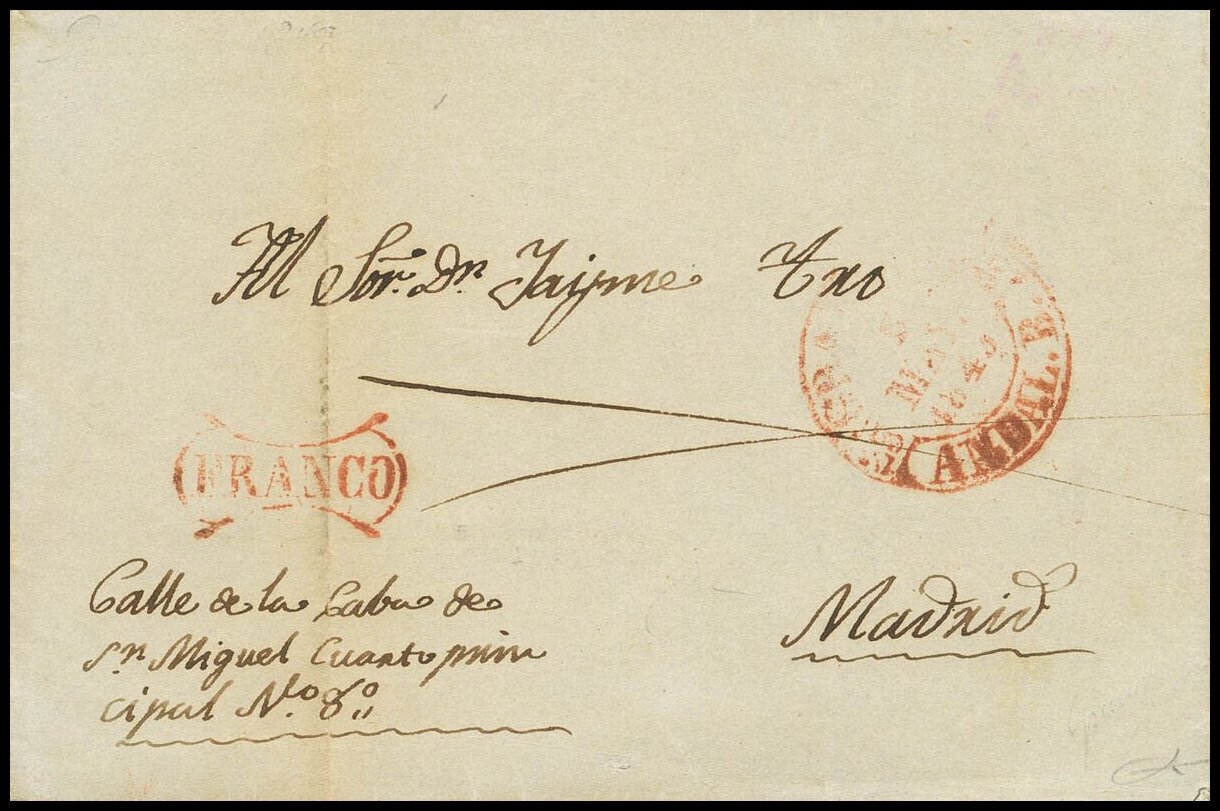 Al Sor. Dn. Jayme Tro
FRANCO
ANDAL. B.
Calle de la Caba de
Sn. Miguel Cuarto prin
cipal No. 8º
Madrid